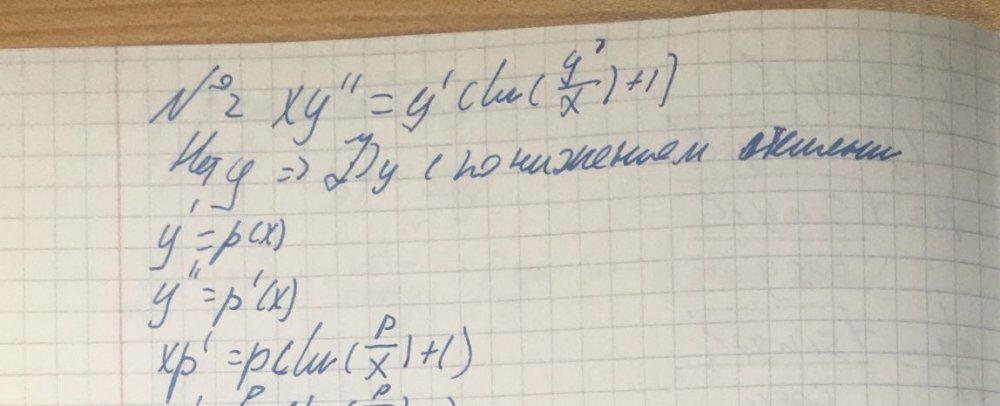 №2 xy'' = y'(ln(y'/x)+1)
Нет y => ДУ с понижением степени
y' = p(x)
y'' = p'(x)
xp' = p(ln(p/x)+1)